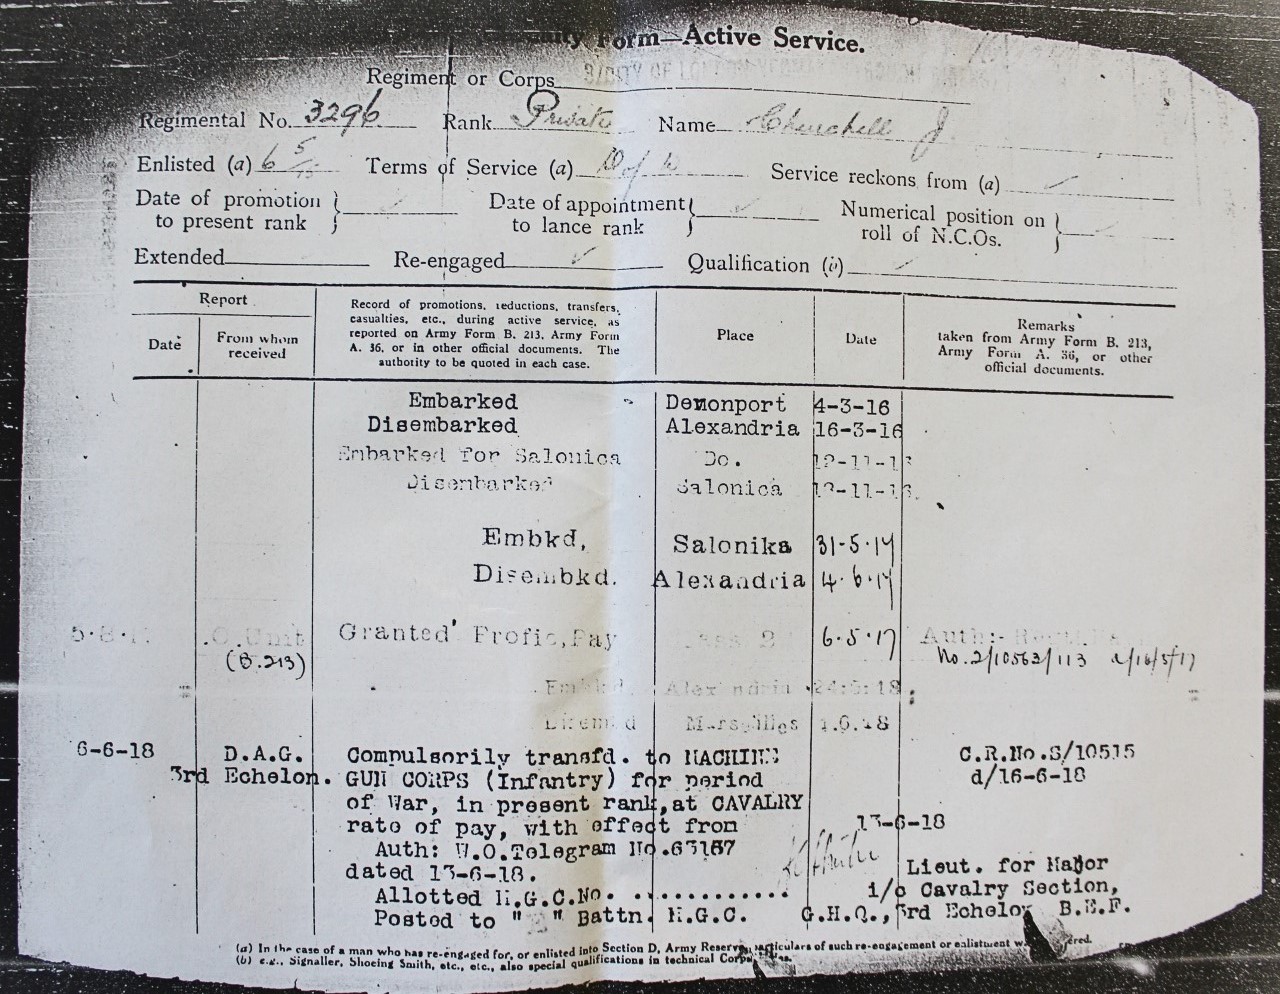 Form—Active Service.
Regiment or Corps
Regimental No. 3296 Rank Private Name Churchill J
Enlisted (a) 6 5/15 Terms of Service (a) D of W Service reckons from (a)
Date of promotion to present rank } Date of appointment to lance rank } Numerical position on roll of N.C.Os. }
Extended Re-engaged Qualification (b)
Report
Date
From whom received
Record of promotions, reductions, transfers, casualties, etc., during active service, as reported on Army Form B. 213, Army Form A. 36, or in other official documents. The authority to be quoted in each case.
Place
Date
Remarks taken from Army Form B. 213, Army Form A. 36, or other official documents.
Embarked Devonport 4-3-16
Disembarked Alexandria 16-3-16
Embarked for Salonica Do.
Disembarked Salonica
Embkd, Salonika 31-5-17
Disembkd. Alexandria 4·6·17
Granted Profic, Pay Class 2 6·5·17 Auth:-
(B.213) No. 2/10563/113 d/16/5/17
Embkd. Alexandria
Disembd Marseilles
6-6-18 D.A.G. Compulsorily transfd. to MACHINE C.R.No.S/10515
3rd Echelon. GUN CORPS (Infantry) for period d/16-6-18
of War, in present rank, at CAVALRY
rate of pay, with effect from 13-6-18
Auth: W.O.Telegram No.63167
dated 13-6-18. Lieut. for Major
Allotted M.G.C.No. ............ i/c Cavalry Section,
Posted to " " Battn. M.G.C. G.H.Q., 3rd Echelon B.E.F.
(a) In the case of a man who has re-engaged for, or enlisted into Section D, Army Reserve, particulars of such re-engagement or enlistment
(b) e.g., Signaller, Shoeing Smith, etc., etc., also special qualifications in technical Corps